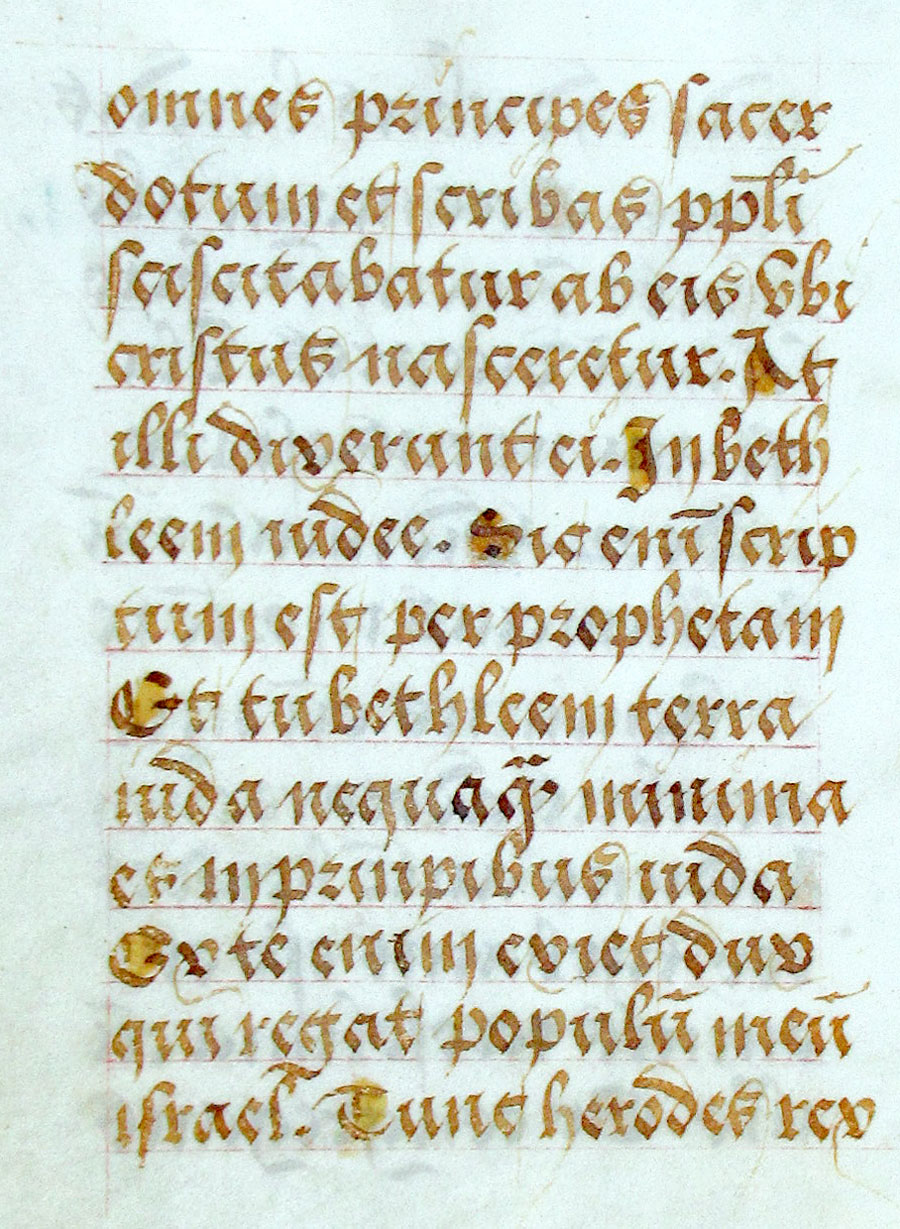 omnes principes sacer
dotum et scribas pp̄li
sciscitabatur ab eis Vbi
cristus nasceretur. At
illi dixerunt ei. In beth
leem iudee. Sic eni̅ scrip
tum est per prophetam
Et tu bethleem terra
iuda nequaq̃ minima
es in prinpibus iuda
Ex te enim exiet dux
qui regat populu̅ meu̅
israel̅. Tunc herodes rex